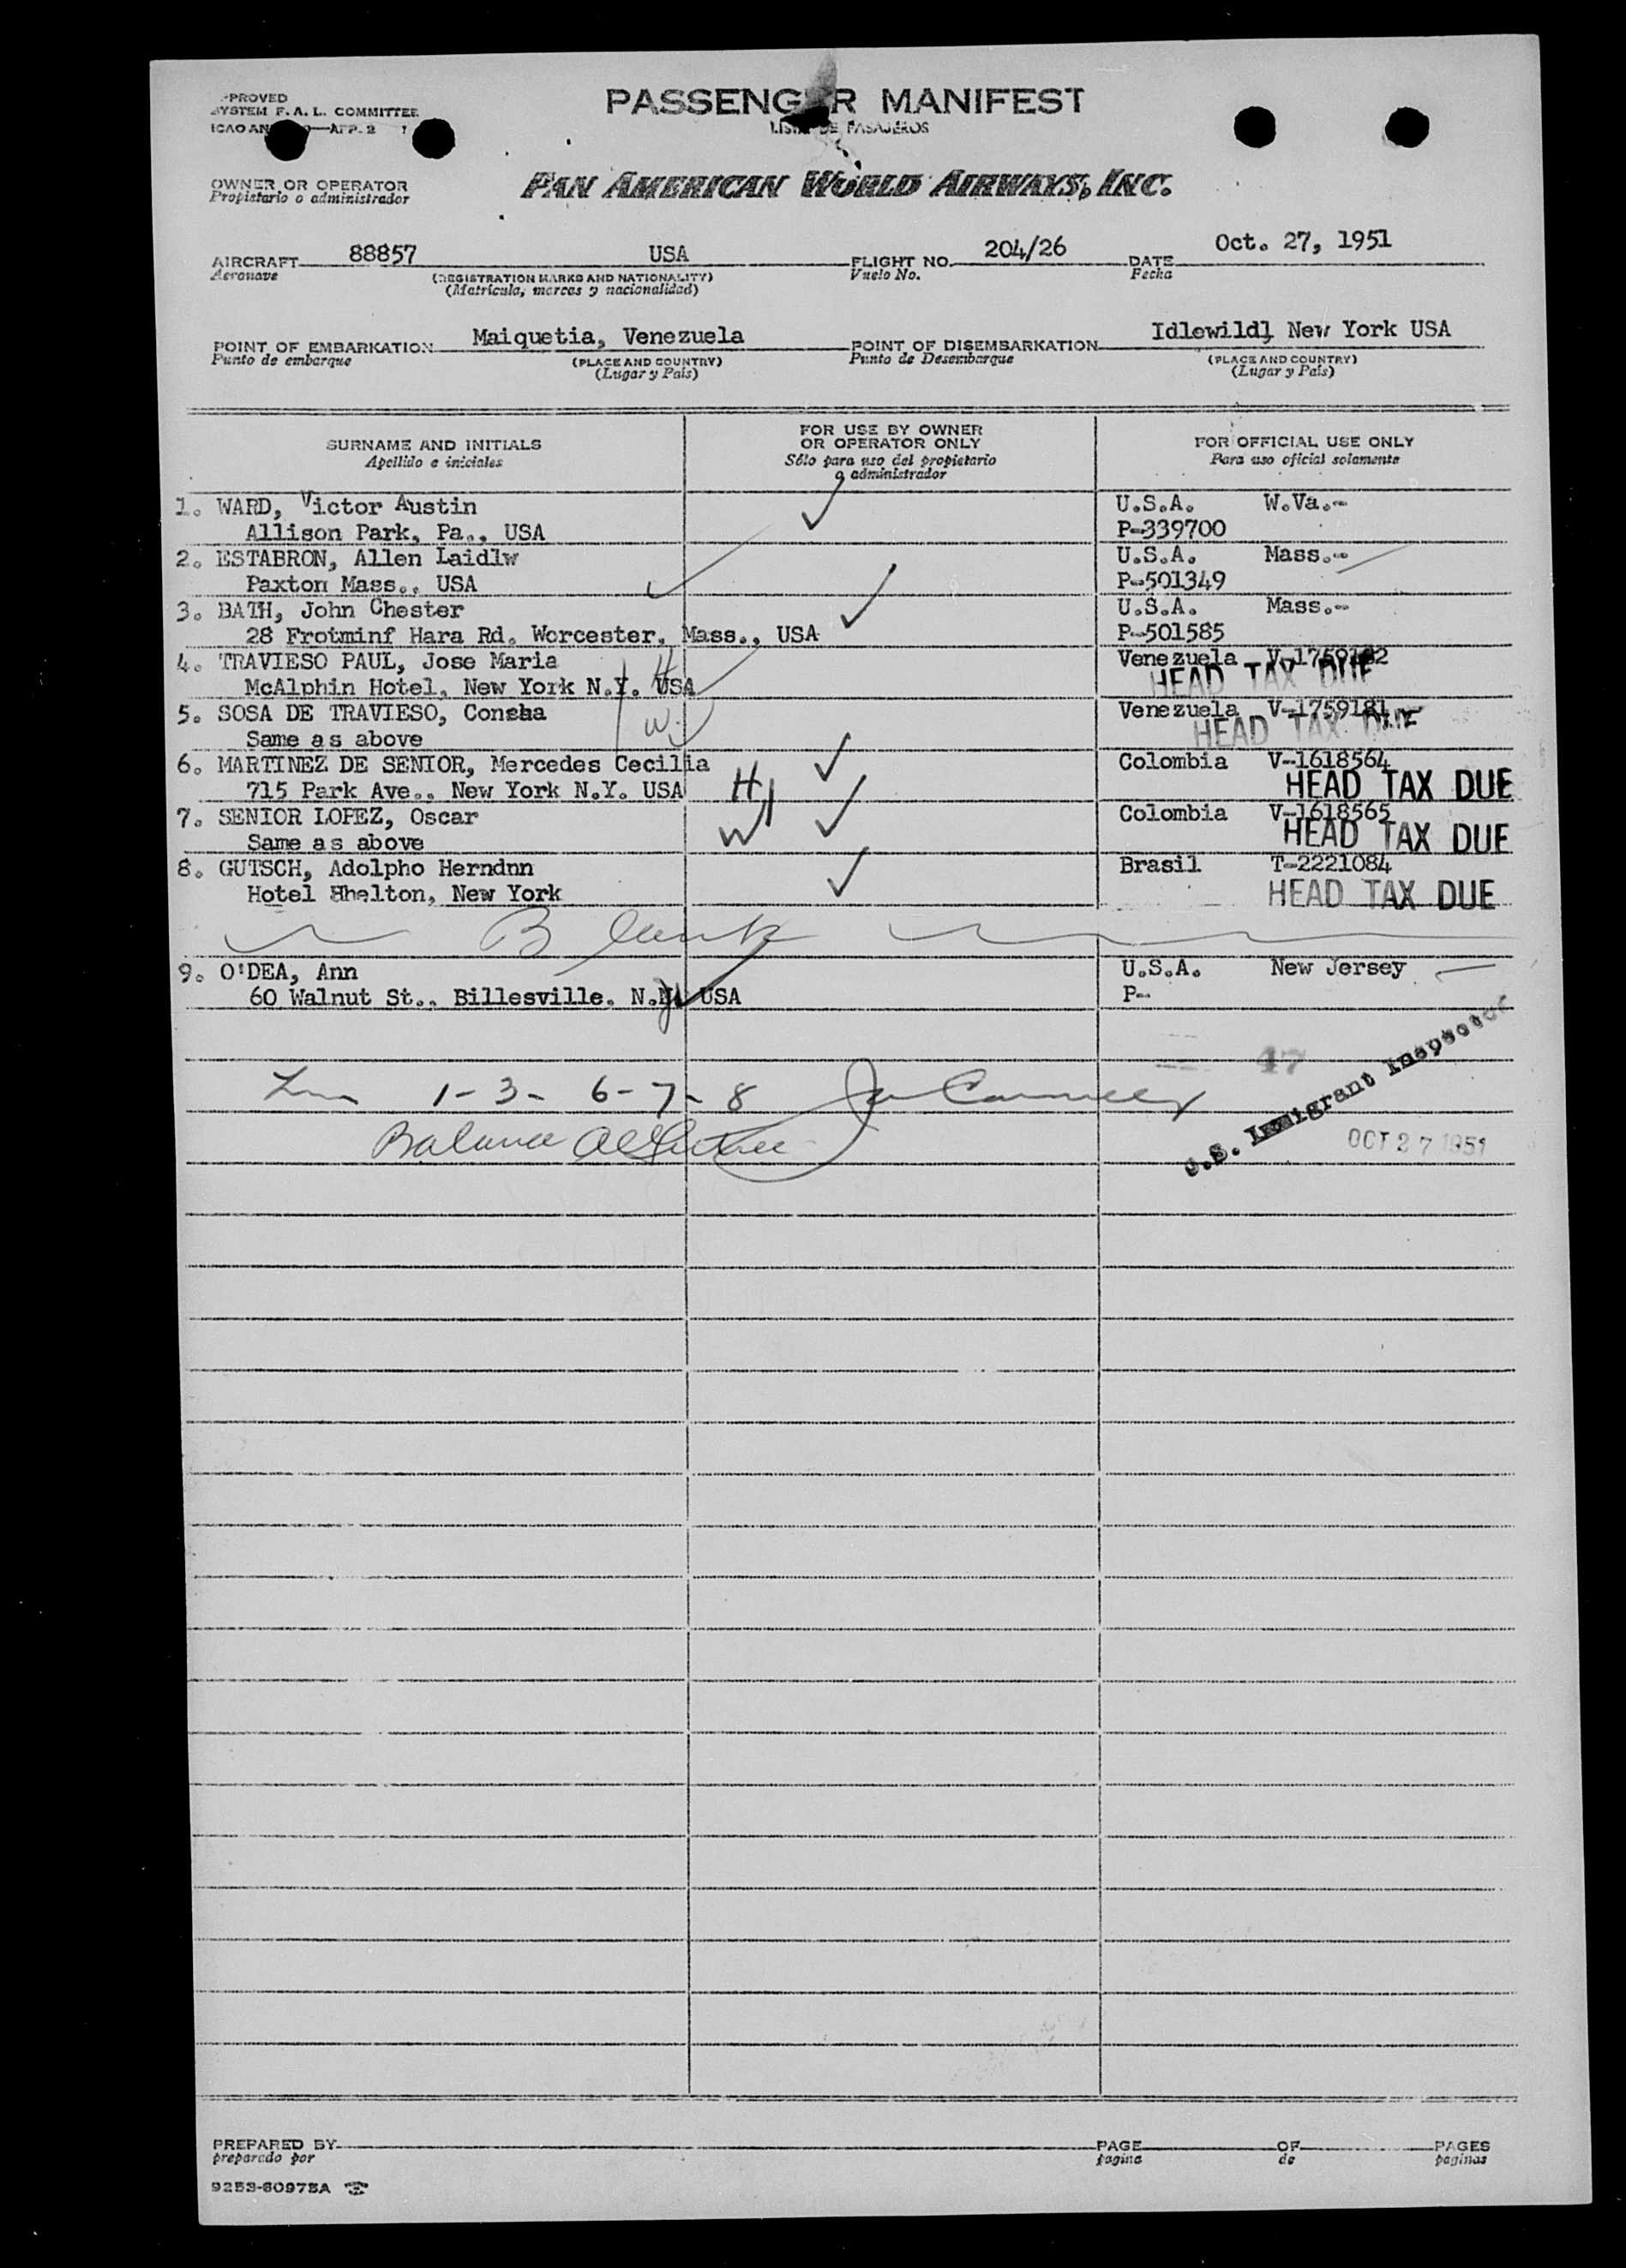 PROVED
SYSTEM F. A. L. COMMITTEE
ICAO AN 9—APP. 2
PASSENGER MANIFEST
LISTA DE PASAJEROS
OWNER OR OPERATOR
Propietario o administrador
PAN AMERICAN WORLD AIRWAYS, INC.
AIRCRAFT 88857 USA FLIGHT NO. 204/26 DATE Oct. 27, 1951
Aeronave (REGISTRATION MARKS AND NATIONALITY) Vuelo No. Fecha
(Matrícula, marcas y nacionalidad)
POINT OF EMBARKATION Maiquetia, Venezuela POINT OF DISEMBARKATION Idlewild, New York USA
Punto de embarque (PLACE AND COUNTRY) Punto de Desembarque (PLACE AND COUNTRY)
(Lugar y País) (Lugar y País)
SURNAME AND INITIALS FOR USE BY OWNER OR OPERATOR ONLY FOR OFFICIAL USE ONLY
Apellido e iniciales Sólo para uso del propietario o administrador Para uso oficial solamente
1. WARD, Victor Austin U.S.A. W.Va.--
Allison Park, Pa., USA P-339700
2. ESTABRON, Allen Laidlw U.S.A. Mass.--
Paxton Mass., USA P-501349
3. BATH, John Chester U.S.A. Mass.--
28 Frotminf Hara Rd. Worcester, Mass., USA P-501585
4. TRAVIESO PAUL, Jose Maria H Venezuela V-1759182
McAlphin Hotel, New York N.Y. USA HEAD TAX DUE
5. SOSA DE TRAVIESO, Concha W Venezuela V-1759181
Same as above HEAD TAX DUE
6. MARTINEZ DE SENIOR, Mercedes Cecilia Colombia V-1618564
715 Park Ave., New York N.Y. USA H HEAD TAX DUE
7. SENIOR LOPEZ, Oscar Colombia V-1618565
Same as above W HEAD TAX DUE
8. GUTSCH, Adolpho Herndnn Brasil T-2221084
Hotel Shelton, New York HEAD TAX DUE
Blank
9. O'DEA, Ann U.S.A. New Jersey
60 Walnut St., Billesville. N.J. USA P--
47
1-3- 6-7-8
Balance
U.S. Immigrant Inspector
OCT 27 1951
PREPARED BY PAGE OF PAGES
preparado por pagina de paginas
9253-60975A